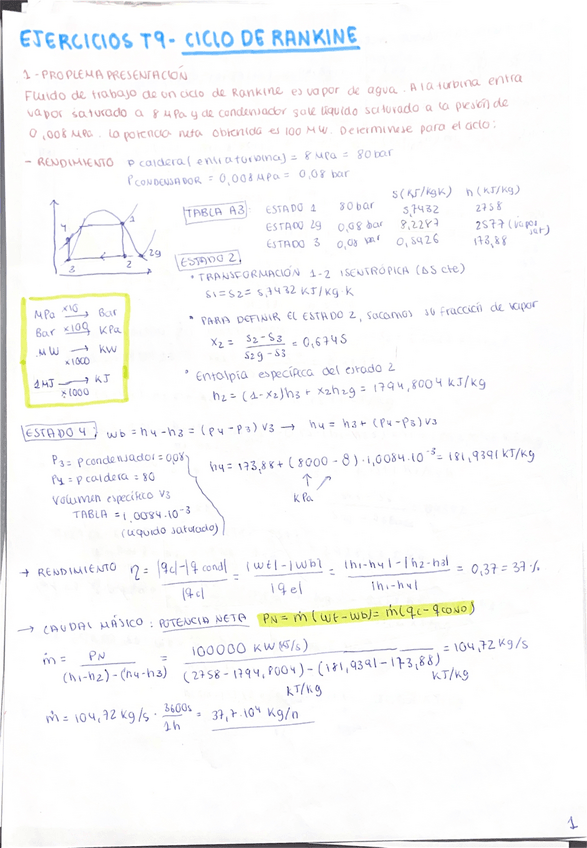 EJERCICIOS T9 - CICLO DE RANKINE
1 - PROPLEMA PRESENTACIÓN
Fluido de trabajo de un ciclo de Rankine es vapor de agua. A la turbina entra
vapor saturado a 8 MPa y de condensador sale líquido saturado a la presión de
0,008 MPa. La potencia neta obtenida es 100 MW. Determínese para el ciclo:
- RENDIMIENTO P caldera (entra turbina) = 8 MPa = 80 bar
P CONDENSADOR = 0,008 MPa = 0,08 bar
S (KJ/KgK) h (KJ/Kg)
TABLA A3: ESTADO 1 80 bar 5,7432 2758
ESTADO 2g 0,08 bar 8,2287 2577 (vapor sat)
ESTADO 3 0,08 bar 0,5926 173,88
4 1 3 2 2g
ESTADO 2:
• TRANSFORMACIÓN 1-2 ISENTRÓPICA (ΔS cte)
S1 = S2 = 5,7432 KJ/Kg·K
• PARA DEFINIR EL ESTADO 2, sacamos su fracción de vapor
X2 = S2 - S3 / S2g - S3 = 0,6745
• Entalpía específica del estado 2
h2 = (1-X2)h3 + X2h2g = 1794,8004 KJ/Kg
MPa x10 → Bar
Bar x100 → KPa
MW → KW x1000
1MJ → KJ x1000
ESTADO 4: wb = h4 - h3 = (P4 - P3) V3 → h4 = h3 + (P4 - P3) V3
P3 = P condensador = 0,08
P4 = P caldera = 80
Volumen específico V3
TABLA = 1,0084·10⁻³
(líquido saturado)
h4 = 173,88 + (8000 - 8) · 1,0084·10⁻³ = 181,9391 KJ/Kg
KPa
→ RENDIMIENTO η = |qc| - |q cond| / |qc| = |wt| - |wb| / |qe| = |h1-h4| - |h2-h3| / |h1-h4| = 0,37 = 37%
→ CAUDAL MÁSICO: POTENCIA NETA PN = ṁ (wt - wb) = ṁ (qc - qcond)
ṁ = PN / (h1-h2) - (h4-h3) = 100000 KW (KJ/s) / (2758 - 1794,8004) - (181,9391 - 173,88) = 104,72 Kg/s
KJ/Kg KJ/Kg
ṁ = 104,72 Kg/s · 3600s / 1h = 37,7·10⁴ Kg/h
1